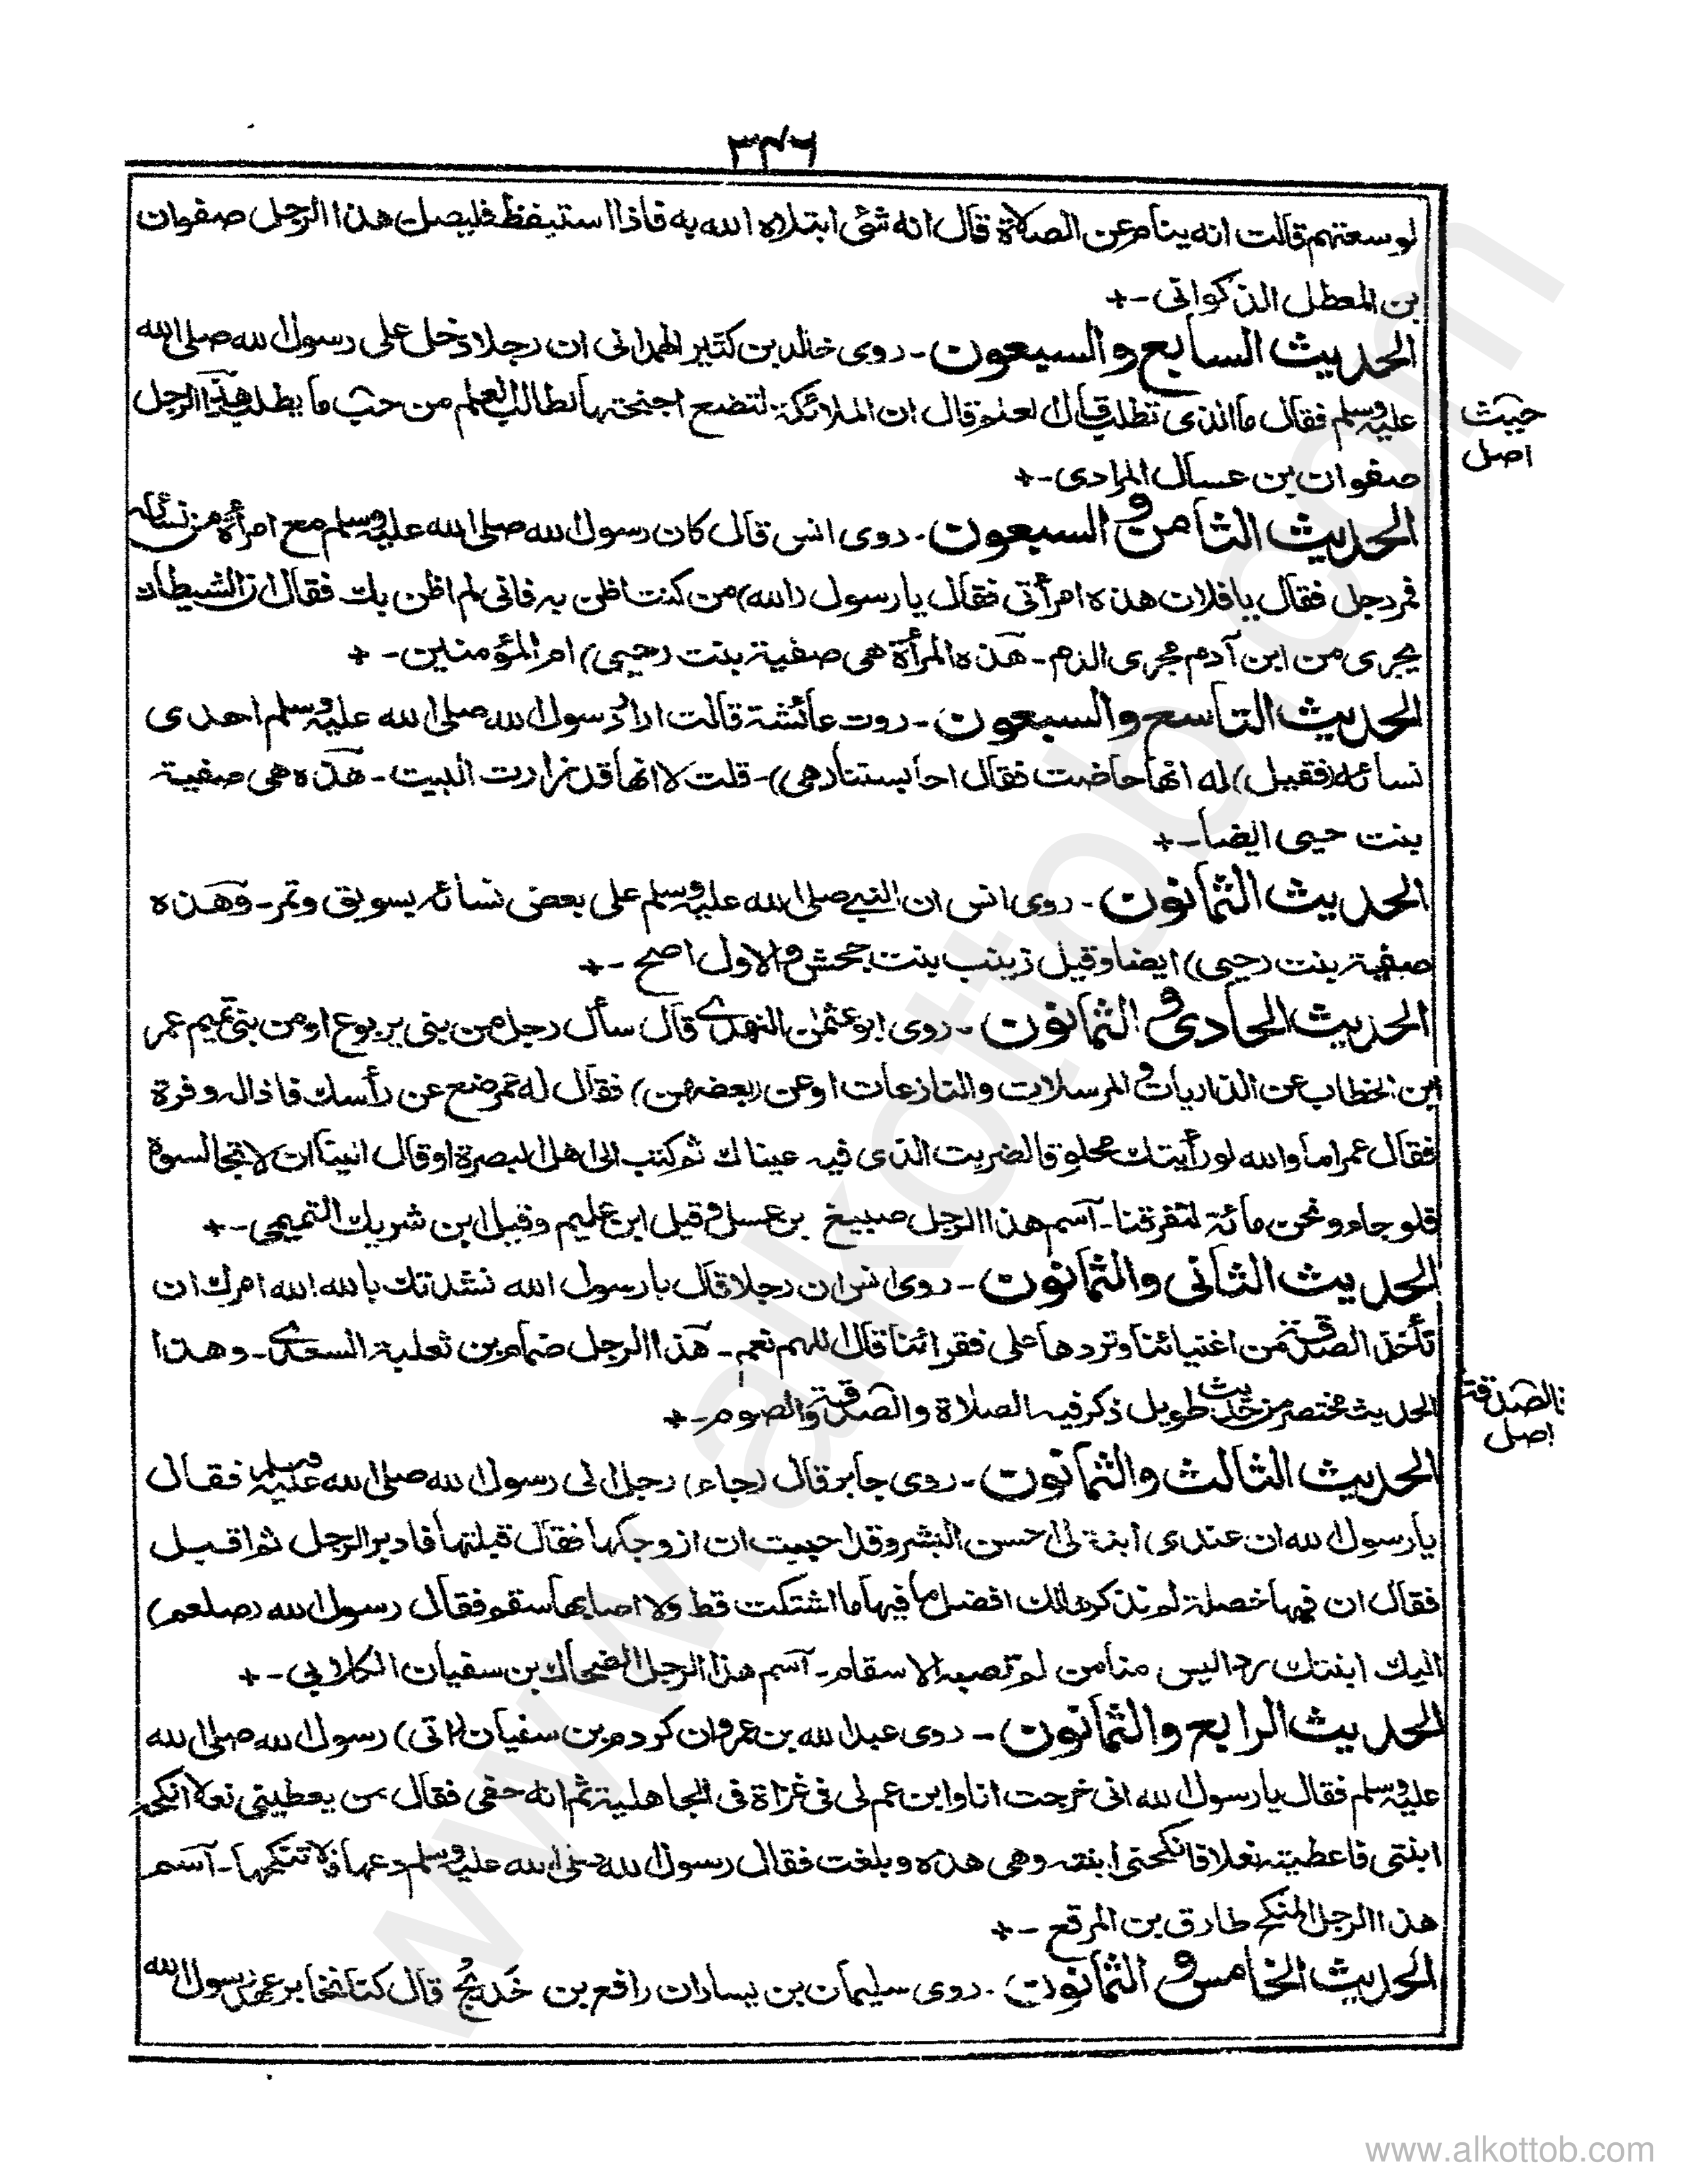 ٣٤٦
لوسعتهم قالت انه ينام عن الصلاة قال انه شئ ابتلاه الله به فاذا استيقظ فليصل هذا الرجل صفوان
بن المعطل الذكوانى -+
الحديث السابع والسبعون - روى خالد بن كثير الهمدانى ان رجلا دخل على رسول الله صلى الله
عليه وسلم فقال ما الذى تطلب قال العلم قال ان الملائكة لتضع اجنحتها لطالب العلم من حب ما يطلب هذا الرجل
حيث
اصل
صفوان بن عسال المرادى -+
الحديث الثامن و السبعون . روى انس قال كان رسول الله صلى الله عليه وسلم مع امرأة من نسائه
فمر رجل فقال يا فلان هذه امرأتى فقال يا رسول (الله) من كنت اظن به فانى لم اظن بك فقال ان الشيطان
يجرى من ابن آدم مجرى الدم - هذه المرأة هى صفية بنت (حيى) ام المؤمنين - +
الحديث التاسع والسبعون - روت عائشة قالت اراد رسول الله صلى الله عليه وسلم احدى
نسائه (فقيل) له انها حاضت فقال احابستنا (هى) - قلت لا انها قد زارت البيت - هذه هى صفية
بنت حيى ايضا -+
الحديث الثمانون - روى انس ان النبى صلى الله عليه وسلم على بعض نسائه بسويق وتمر - وهذه
صفية بنت (حيى) ايضا وقيل زينب بنت جحش والاول اصح -+
الحديث الحادى و الثمانون - روى ابو عثمان النهدى قال سأل رجل من بنى يربوع او من بنى تميم عمر
ابن الخطاب عن الذاريات و المرسلات والنازعات او عن (بعضهن) فقال له عمر ضع عن رأسك فاذا له وفرة
فقال عمر اما والله لو رأيتك محلوقا لضربت الذى فيه عيناك ثم كتب الى اهل البصرة او قال الينا ان لا تجالسوه
فلو جاء و نحن مائة لتفرقنا - آسم هذا الرجل صبيغ بن عسل وقيل ابن عليم وقيل ابن شريك التميمى -+
الحديث الثانى والثمانون - روى انس ان رجلا قال يا رسول الله نشدتك بالله الله امرك ان
تأخذ الصدقة من اغنيائنا وتردها على فقرائنا قال اللهم نعم - هذا الرجل ضمام بن ثعلبة السعدى - وهذا
الحديث مختصر من حديث طويل ذكر فيه الصلاة والصدقة والصوم -+
بالصدقة
اصل
الحديث الثالث والثمانون - روى جابر قال (جاء) رجل الى رسول الله صلى الله عليه وسلم فقال
يا رسول الله ان عندى ابنة لى احسن البشر وقد احببت ان ازوجكها فقال قبلتها فادبر الرجل ثم اقبل
فقال ان فيها خصلة لم نذكرها لك افضل ما فيها ما اشتكت قط ولا اصابها سقم فقال رسول الله (صلعم)
اليك ابنتك رد اليس منا من لم تصبه الاسقام - آسم هذا الرجل الضحاك بن سفيان الكلابى -+
الحديث الرابع والثمانون - روى عبد الله بن عمرو ان كردم بن سفيان (اتى) رسول الله صلى الله
عليه وسلم فقال يا رسول الله انى خرجت انا وابن عم لى فى غزاة فى الجاهلية ثم انه حفى فقال من يعطينى نعلا انكحه
ابنتى فاعطيته نعلا فانكحنى ابنته وهى هذه وبلغت فقال رسول الله صلى الله عليه وسلم دعها فلا تنكحها - آسم
هذا الرجل المنكح طارق بن المرقع -+
الحديث الخامس و الثمانون . روى سليمان بن يسار ان رافع بن خَديج قال كنا نخابر على عهد رسول الله
www.alkottob.com